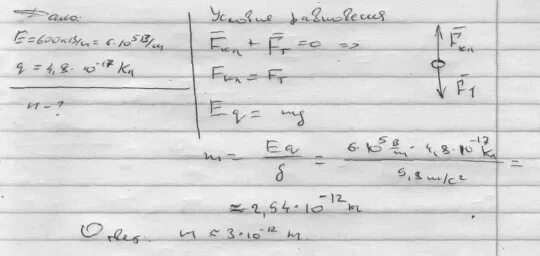 Дано:
E=600кВ/м=6·10⁵В/м
q = 4,8·10⁻¹⁷ Кл
m - ?
Условия равновесия
F̅кл + F̅т = 0 =>
Fкл = Fт
Eq = mg
m = Eq/g = (6·10⁵ В/м · 4,8·10⁻¹⁷ Кл)/(9,8 м/с²) =
≈ 2,94·10⁻¹² м
Ответ: m ≈ 3·10⁻¹² м.
F̅кл
F̅т